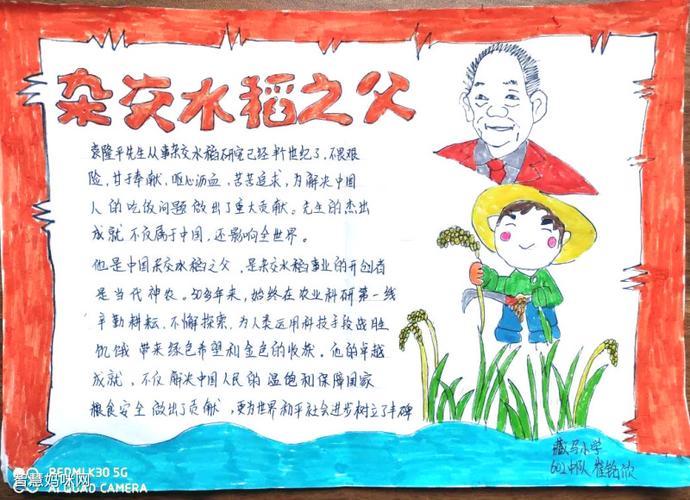 杂交水稻之父
袁隆平先生从事杂交水稻研究已经半世纪了，不畏艰
险，甘于奉献，呕心沥血，苦苦追求，为解决中国
人的吃饭问题做出了重大贡献。先生的杰出
成就不仅属于中国，还影响全世界。
他是中国杂交水稻之父，是杂交水稻事业的开创者
是当代神农。50多年来，始终在农业科研第一线
辛勤耕耘、不懈探索，为人类运用科技手段战胜
饥饿带来绿色希望和金色的收获。他的卓越
成就，不仅解决中国人民的温饱和保障国家
粮食安全做出了贡献，更为世界和平社会进步树立了丰碑
藏马小学
602中队 崔铭欣
REDMI K30 5G
AI QUAD CAMERA
智慧妈咪网